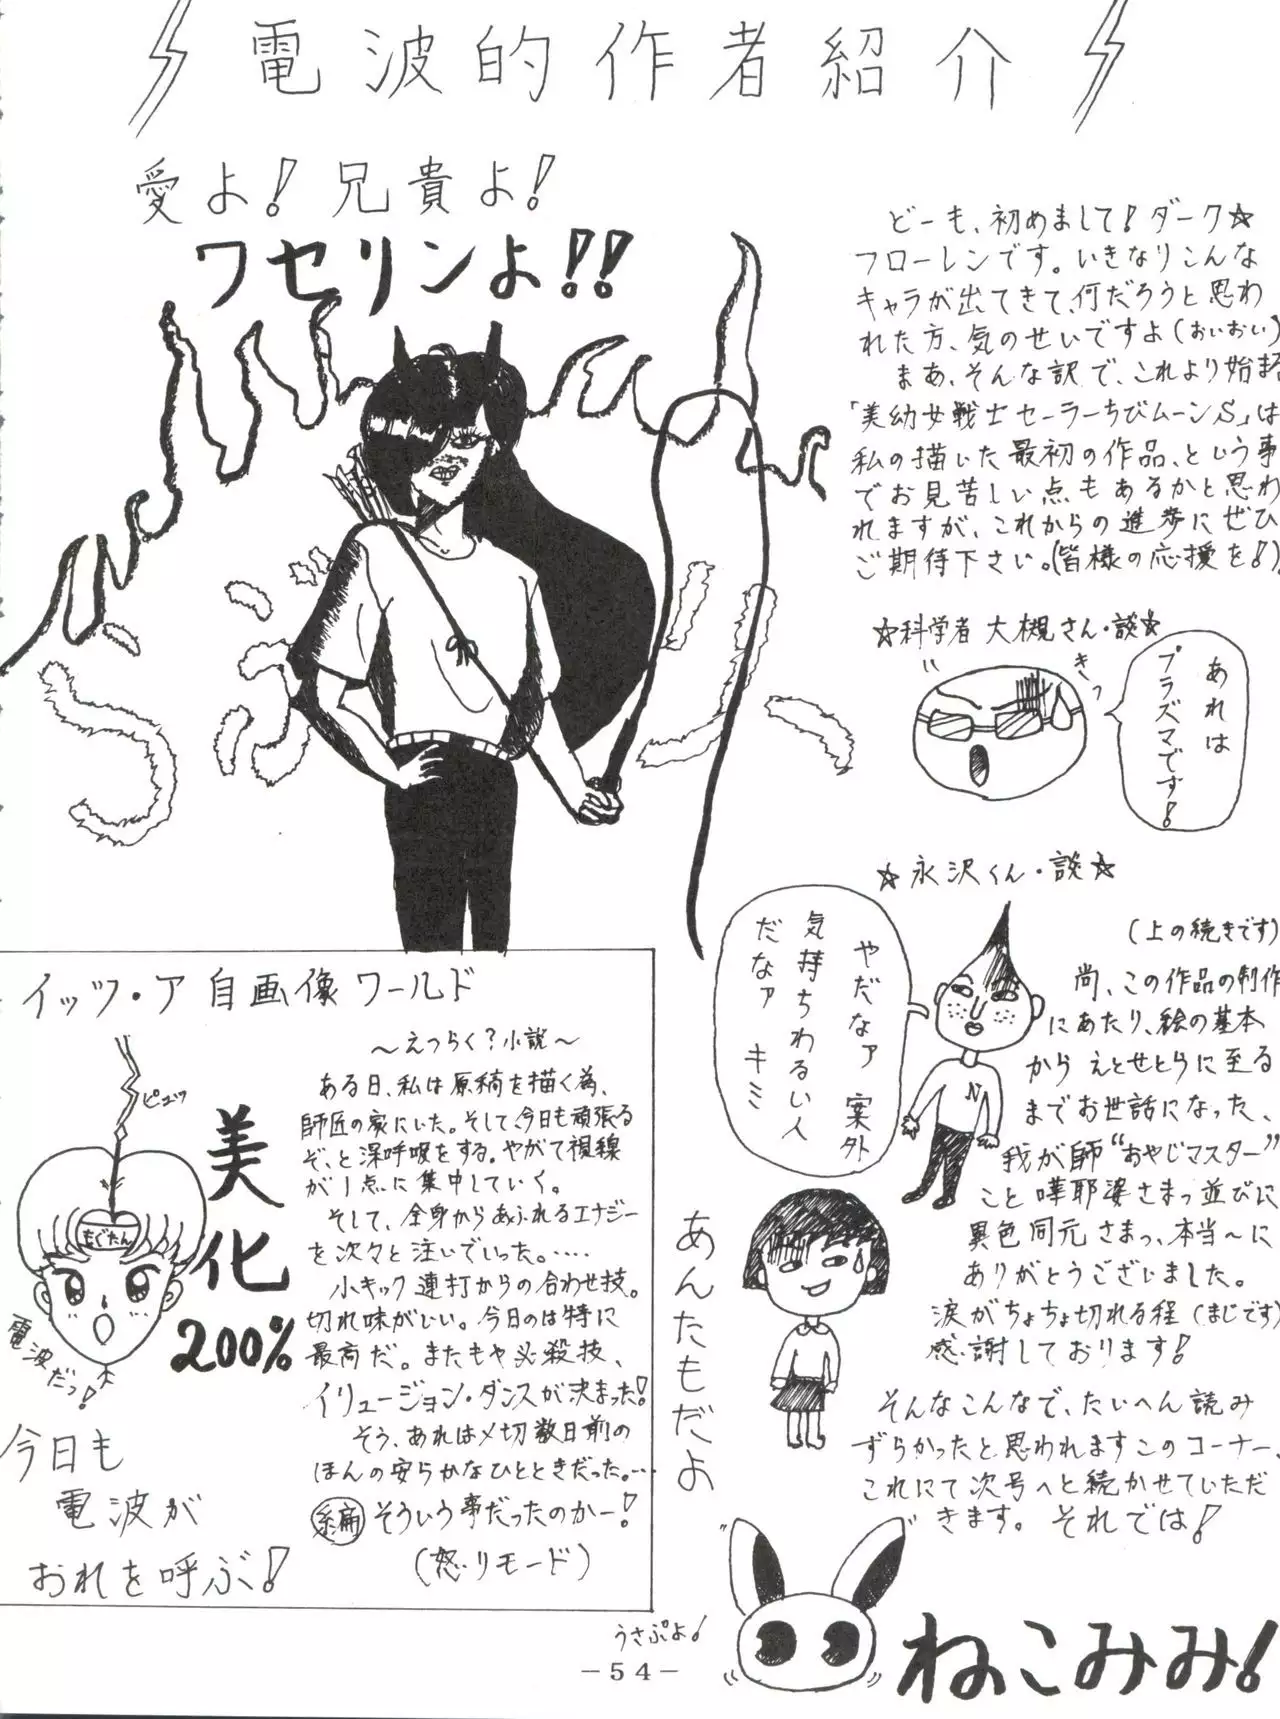 電波的作者紹介
愛よ!兄貴よ!
ワセリンよ!!
どーも、初めまして!ダーク☆
フローレンです。いきなりこんな
キャラが出てきて、何だろうと思わ
れた方、気のせいですよ(おいおい)
まあ、そんな訳で、これより始まる
「美幼女戦士セーラーちびムーンS」は
私の描いた最初の作品、という事
でお見苦しい点もあるかと思わ
れますが、これからの進歩にぜひ
ご期待下さい。(皆様の応援を!)。
☆科学者 大槻さん・談☆
きっ
あれは
プラズマです!
☆永沢くん・談☆
やだなァ 案外
気持ちわるい人
だなァ キミ
あんたもだよ
(上の続きです)
尚、この作品の制作
にあたり、絵の基本
から えとせとらに至る
までお世話になった、
我が師“おやじマスター”
こと 嘩耶婆さまっ並びに
異色同元さまっ、本当〜に
ありがとうございました。
涙がちょちょ切れる程(まじです)
感謝しております!
そんなこんなで、たいへん読み
ずらかったと思われますこのコーナー、
これにて次号へと続かせていただ
きます。それでは!
イッツ・ア 自画像ワールド
ピュッ
もぐたん
電波だっ!
美化
200%
今日も
電波が
おれを呼ぶ!
〜えつらく?小説〜
ある日、私は原稿を描く為、
師匠の家にいた。そして、今日も頑張る
ぞ、と深呼吸をする。やがて視線
が1点に集中していく。
そして、全身からあふれるエナジー
を次々と注いでいった。‥‥
小キック連打からの合わせ技。
切れ味がいい。今日のは特に
最高だ。またもや必殺技、
イリュージョン・ダンスが決まった!
そう、あれは〆切数日前の
ほんの安らかなひとときだった。‥
編 そういう事だったのかー!
(怒りモード)
うさぷよ!
ねこみみ!
-54-